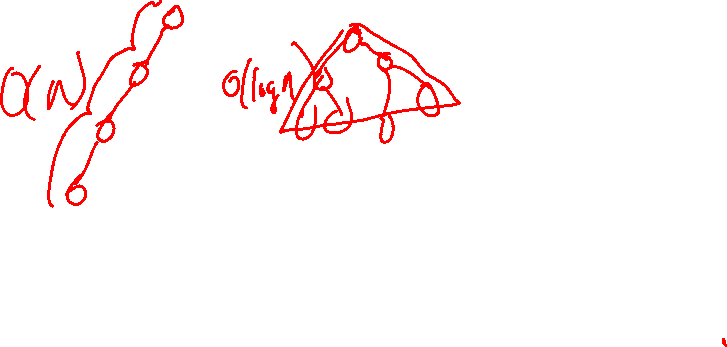 O(N)
O(log n)